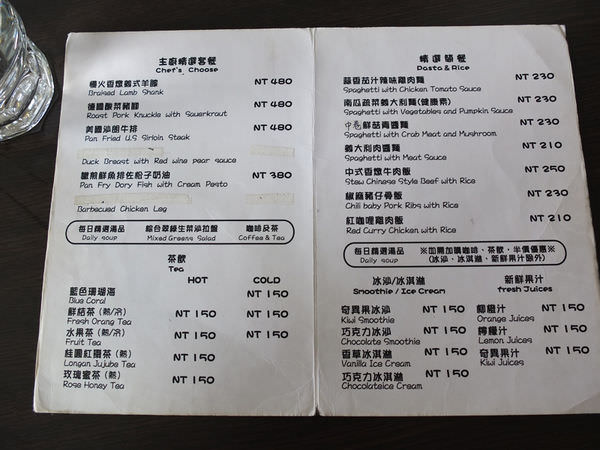 主廚精選套餐
Chef's Choose
慢火香燉義式羊膝 NT 480
Braised Lamb Shank
德國酸菜豬腳 NT 480
Roast Pork Knuckle with Sauerkraut
美國沙朗牛排 NT 480
Pan Fried U.S Sirloin Steak
Duck Breast with Red wine pear sauce
嫩煎鮮魚排佐松子奶油 NT 380
Pan Fry Dory Fish with Cream Pesto
Barbecued Chicken Leg
每日精選湯品 綜合翠綠生菜沙拉盤 咖啡及茶
Daily soup Mixed Greens Salad Coffee & Tea
茶飲
Tea
HOT COLD
藍色珊瑚海 NT 150
Blue Coral
鮮桔茶 (熱/冷) NT 150 NT 150
Fresh Orang Tea
水果茶 (熱/冷) NT 150 NT 150
Fruit Tea
桂圓紅棗茶 (熱) NT 150
Longan Jujube Tea
玫瑰蜜茶 (熱) NT 150
Rose Honey Tea
精選簡餐
Pasta & Rice
蒜香茄汁辣味雞肉麵 NT 230
Spaghetti with Chicken Tomato Sauce
南瓜蔬菜義大利麵(健康素) NT 230
Spaghetti with Vegetables and Pumpkin Sauce
鮮菇青醬麵 NT 230
Spaghetti with Crab Meat and Mushroom
義大利肉醬麵 NT 210
Spaghetti with Meat Sauce
中式香燉牛肉飯 NT 250
Stew Chinese Style Beef with Rice
椒麻豬仔骨飯 NT 230
Chili baby Pork Ribs with Rice
紅咖哩雞肉飯 NT 210
Red Curry Chicken with Rice
每日精選湯品 ※如需加購咖啡、茶飲，半價優惠※
Daily soup (冰沙、冰淇淋、新鮮果汁除外)
冰沙/冰淇淋 新鮮果汁
Smoothie / Ice Cream fresh Juices
奇異果冰沙 NT 150 柳橙汁 NT 150
Kiwi Smoothie Orange Juices
巧克力冰沙 NT 150 檸檬汁 NT 150
Chocolate Smoothie Lemon Juices
香草冰淇淋 NT 150 奇異果汁 NT 150
Vanilla Ice Cream Kiwi Juices
巧克力冰淇淋 NT 150
Chocolateice Cream